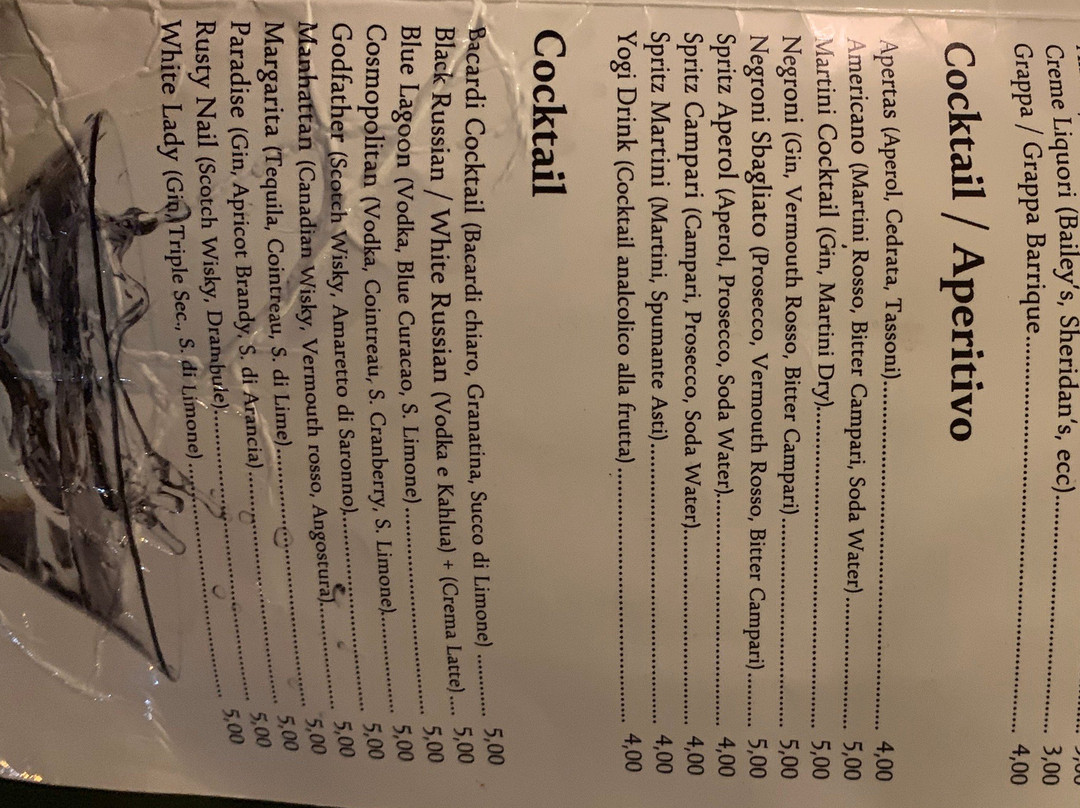 Creme Liquori (Bailey's, Sheridan's, ecc)........ 3,00
Grappa / Grappa Barrique........ 4,00
Cocktail / Aperitivo
Apertas (Aperol, Cedrata, Tassoni)........ 4,00
Americano (Martini Rosso, Bitter Campari, Soda Water)........ 5,00
Martini Cocktail (Gin, Martini Dry)........ 5,00
Negroni (Gin, Vermouth Rosso, Bitter Campari)........ 5,00
Negroni Sbagliato (Prosecco, Vermouth Rosso, Bitter Campari)........ 5,00
Spritz Aperol (Aperol, Prosecco, Soda Water)........ 4,00
Spritz Campari (Campari, Prosecco, Soda Water)........ 4,00
Spritz Martini (Martini, Spumante Asti)........ 4,00
Yogi Drink (Cocktail analcolico alla frutta)........ 4,00
Cocktail
Bacardi Cocktail (Bacardi chiaro, Granatina, Succo di Limone)........ 5,00
Black Russian / White Russian (Vodka e Kahlua) + (Crema Latte).... 5,00
Blue Lagoon (Vodka, Blue Curacao, S. Limone)........ 5,00
Cosmopolitan (Vodka, Cointreau, S. Cranberry, S. Limone)........ 5,00
Godfather (Scotch Wisky, Amaretto di Saronno)........ 5,00
Manhattan (Canadian Wisky, Vermouth rosso, Angostura)........ 5,00
Margarita (Tequila, Cointreau, S. di Lime)........ 5,00
Paradise (Gin, Apricot Brandy, S. di Arancia)........ 5,00
Rusty Nail (Scotch Wisky, Drambule)........ 5,00
White Lady (Gin, Triple Sec., S. di Limone)........ 5,00